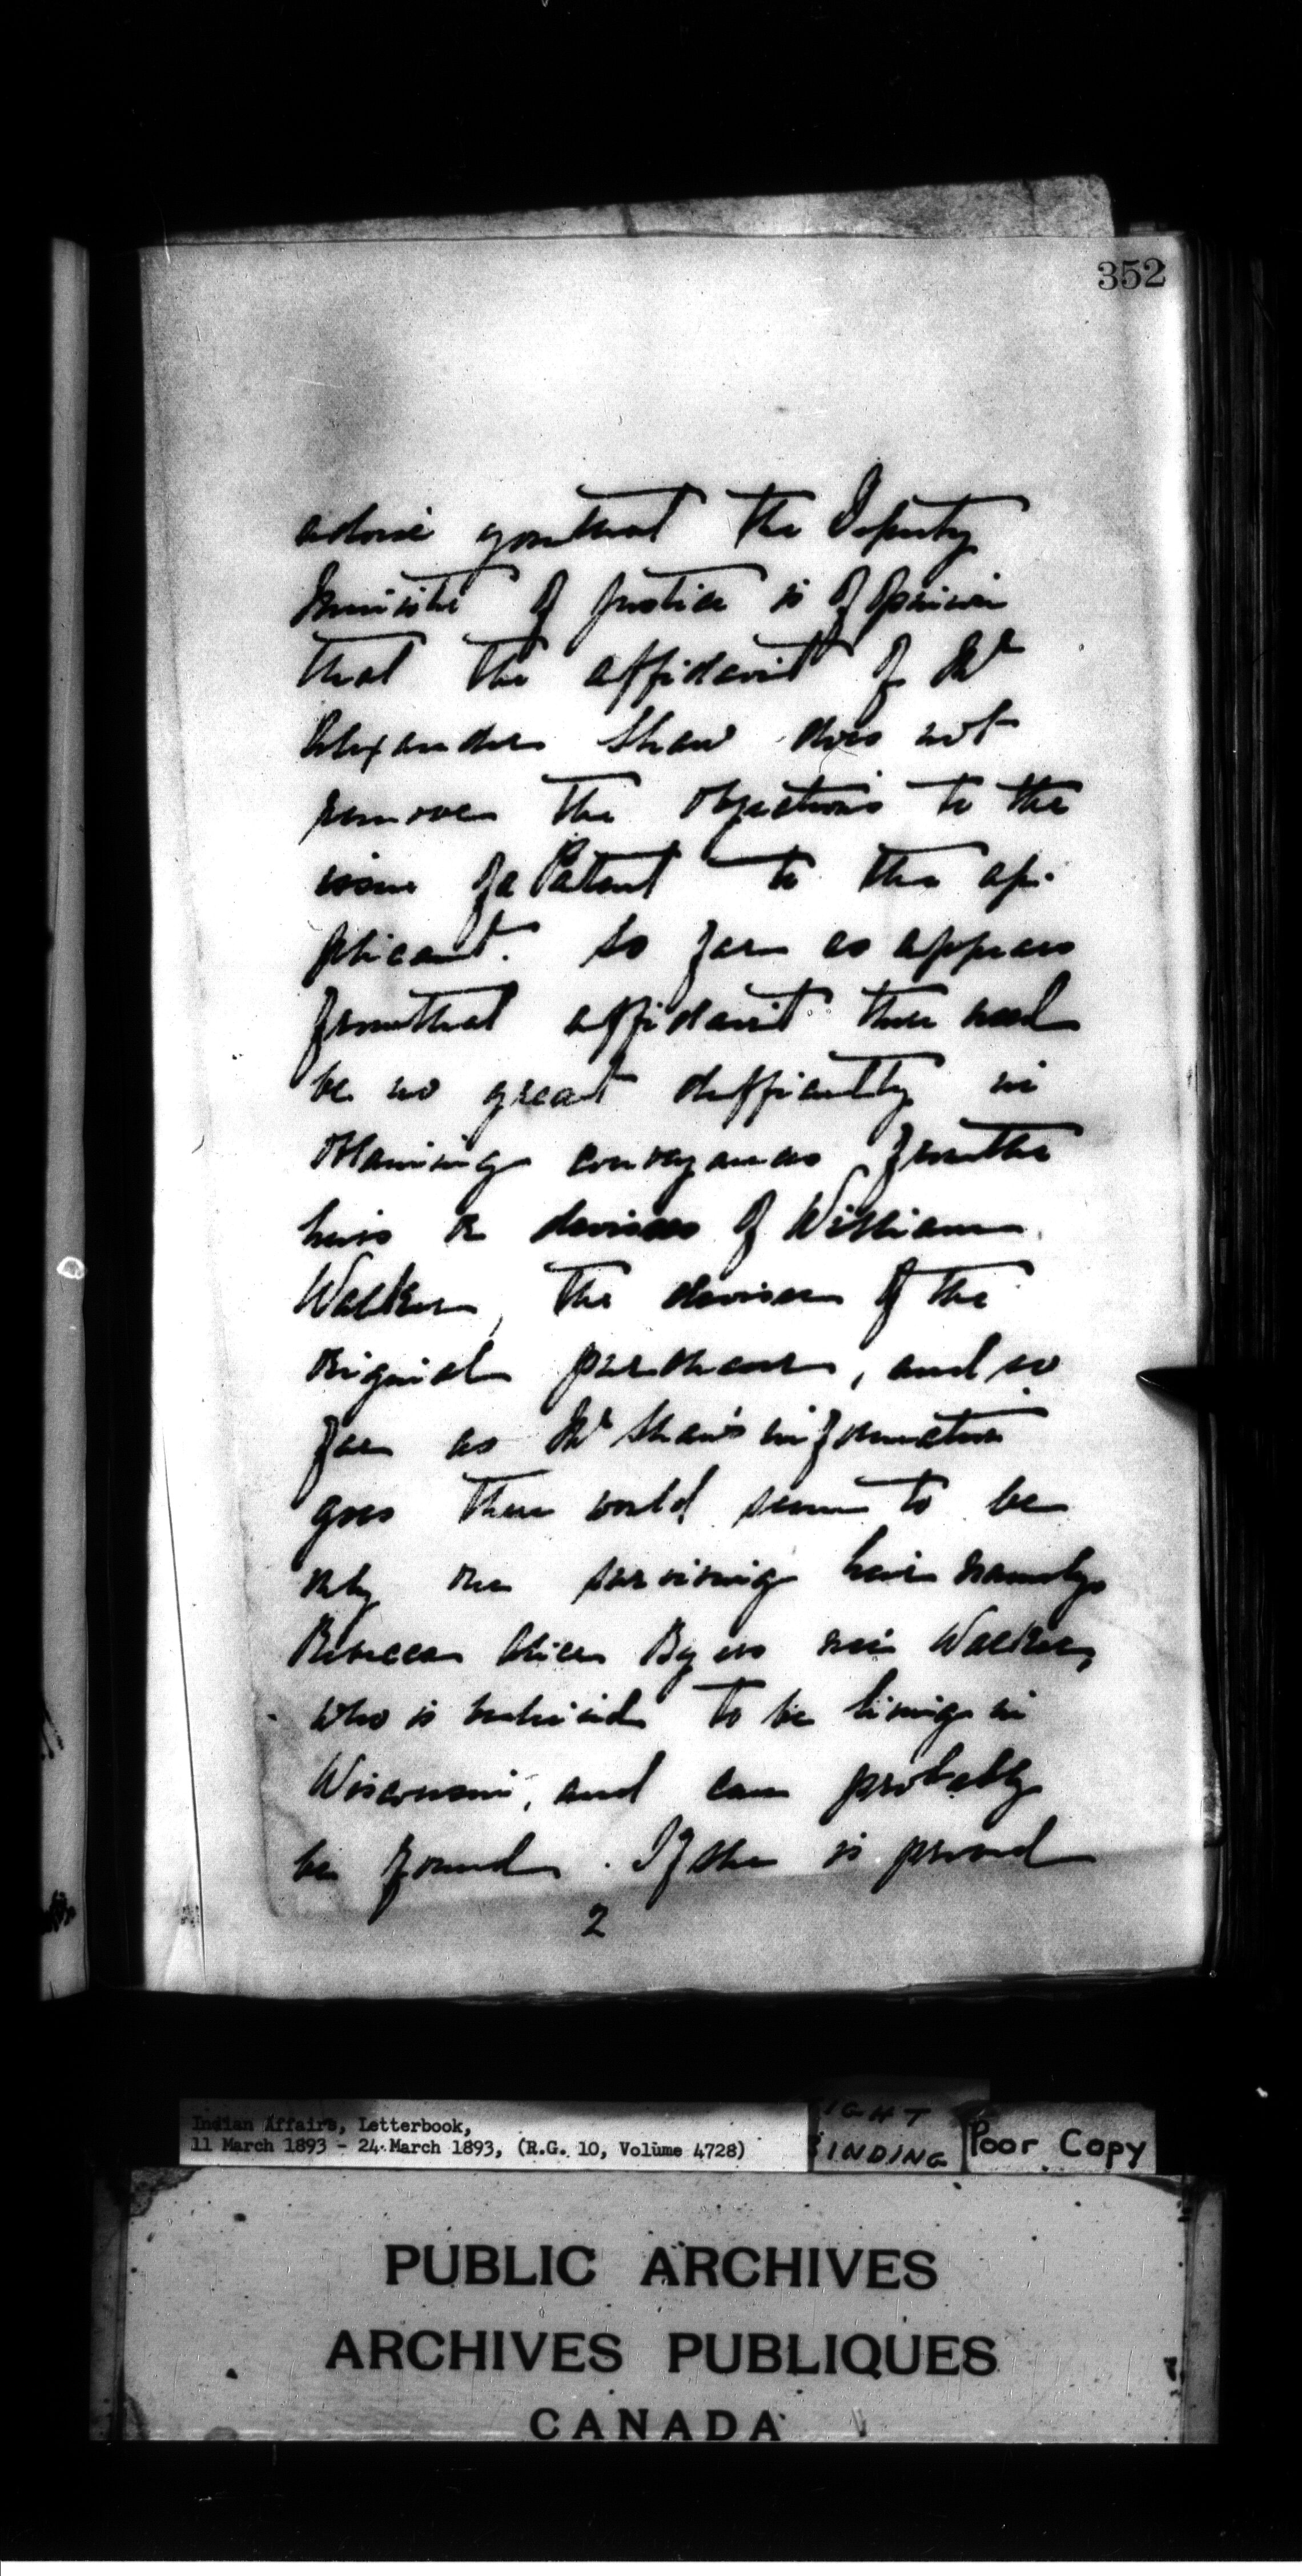 352
advise you that the Deputy
Minister of Justice is of opinion
that the affidavit of Mr
Alexander Shaw does not
remove the objections to the
issue of a Patent to the ap-
plicant. So far as appears
from that affidavit there need
be no great difficulty in
obtaining conveyances from the
heirs or devisees of William
Walker, the devisee of the
original purchaser, and so
far as Mr Shaw's information
goes there would seem to be
only one surviving heir namely
Rebecca Alice Byers née Walker,
who is believed to be living in
Wisconsin, and can probably
be found. If she is proved
2
Indian Affairs, Letterbook,
11 March 1893 - 24 March 1893, (R.G. 10, Volume 4728)
IGHT
BINDING
Poor Copy
PUBLIC ARCHIVES
ARCHIVES PUBLIQUES
CANADA